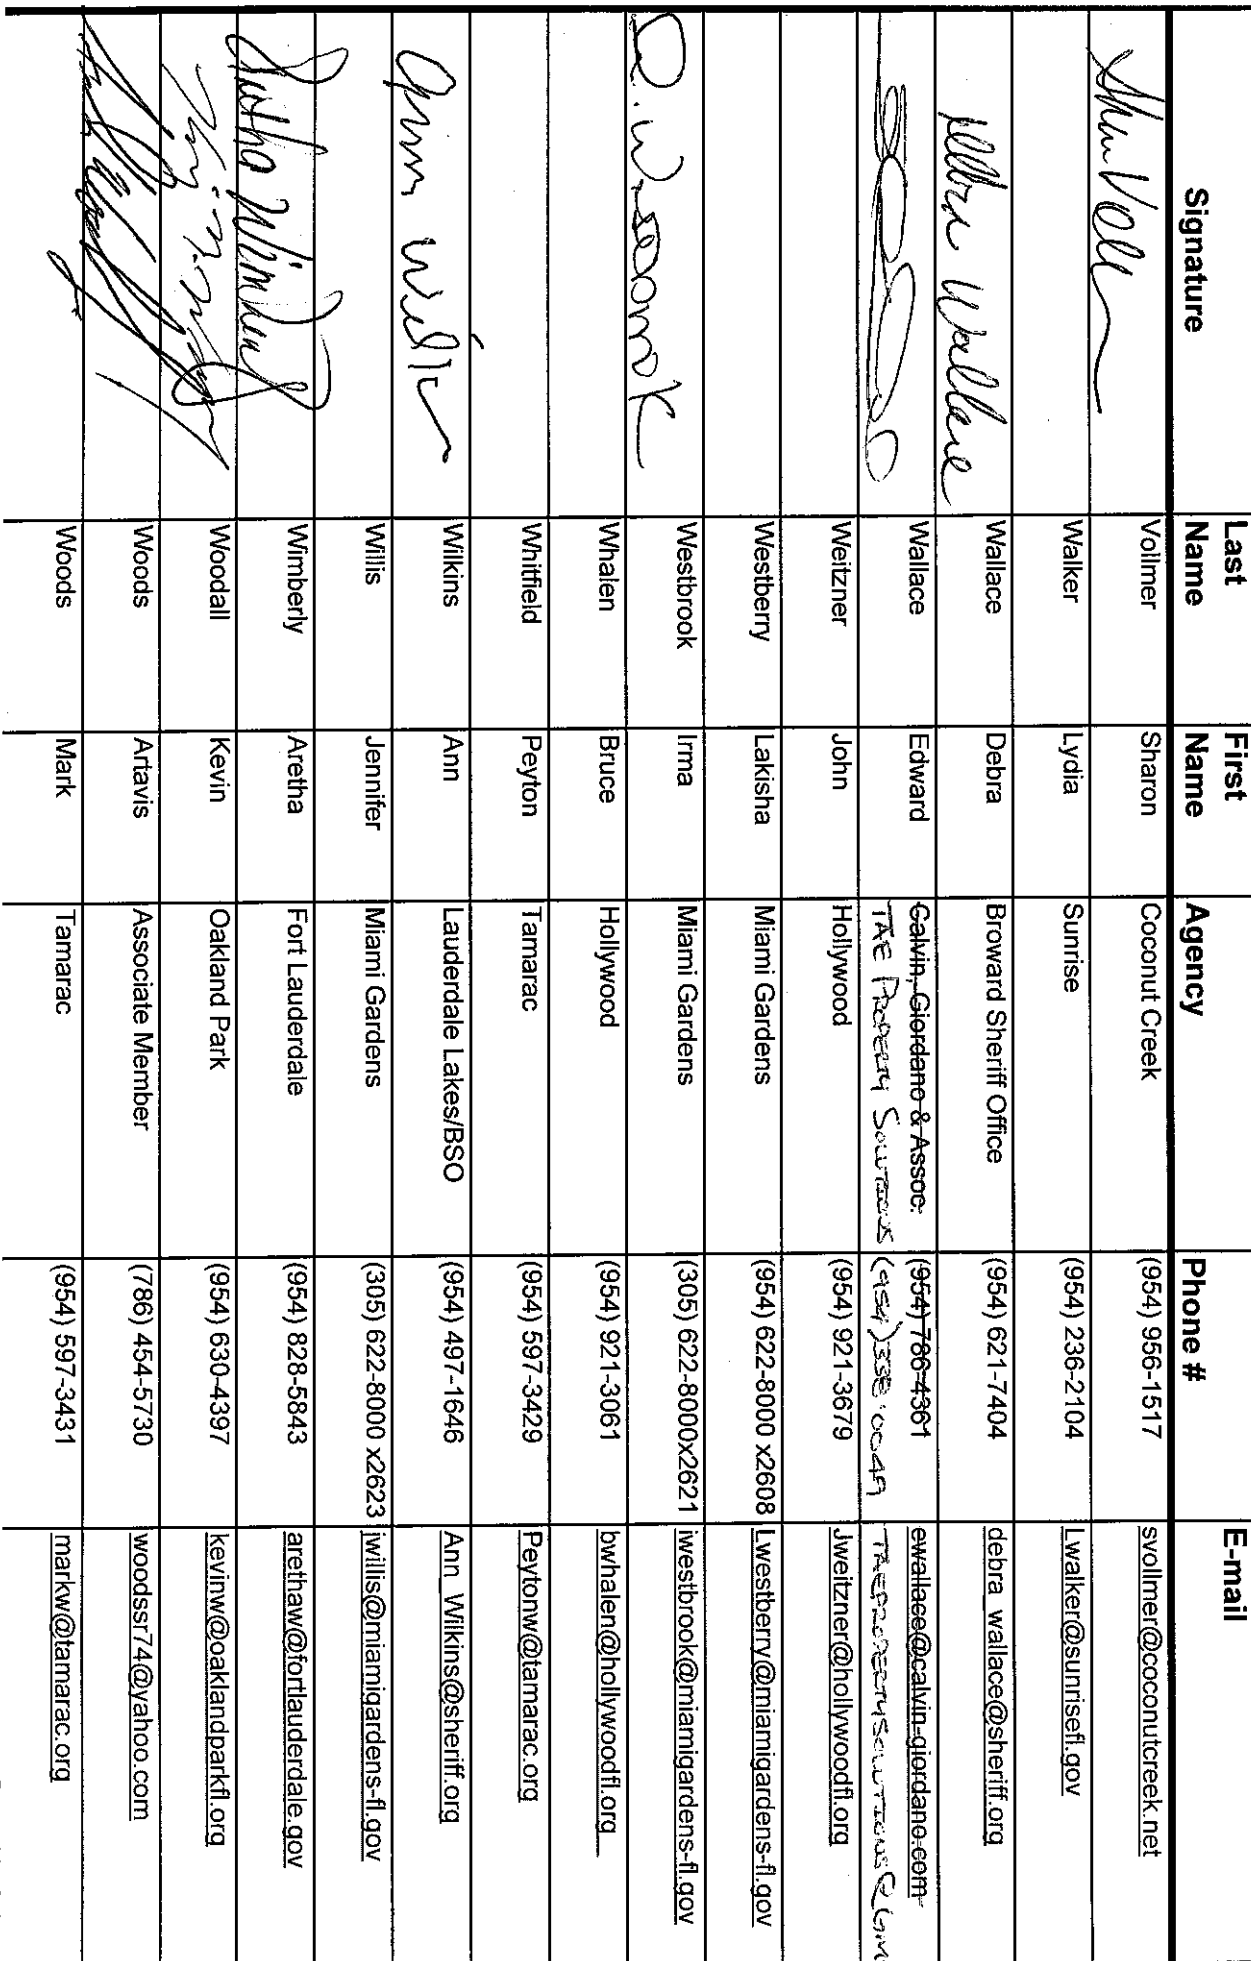 Signature Last Name First Name Agency Phone # E-mail
Vollmer Sharon Coconut Creek (954) 956-1517 svollmer@coconutcreek.net
Walker Lydia Sunrise (954) 236-2104 Lwalker@sunrisefl.gov
Debra Wallace Wallace Debra Broward Sheriff Office (954) 621-7404 debra_wallace@sheriff.org
Wallace Edward Calvin, Giordano & Assoc. (954) 786-4361 ewallace@calvin-giordano.com
TAE PROPERTY SOLUTIONS (954) TAEPROPERTYSOLUTIONS@GM
Weitzner John Hollywood (954) 921-3679 Jweitzner@hollywoodfl.org
Westberry Lakisha Miami Gardens (954) 622-8000 x2608 Lwestberry@miamigardens-fl.gov
Westbrook Irma Miami Gardens (305) 622-8000x2621 iwestbrook@miamigardens-fl.gov
Whalen Bruce Hollywood (954) 921-3061 bwhalen@hollywoodfl.org
Whitfield Peyton Tamarac (954) 597-3429 Peytonw@tamarac.org
Wilkins Ann Lauderdale Lakes/BSO (954) 497-1646 Ann_Wilkins@sheriff.org
Willis Jennifer Miami Gardens (305) 622-8000 x2623 jwillis@miamigardens-fl.gov
Aretha Wimberly Wimberly Aretha Fort Lauderdale (954) 828-5843 arethaw@fortlauderdale.gov
Woodall Kevin Oakland Park (954) 630-4397 kevinw@oaklandparkfl.org
Woods Artavis Associate Member (786) 454-5730 woodssr74@yahoo.com
Woods Mark Tamarac (954) 597-3431 markw@tamarac.org